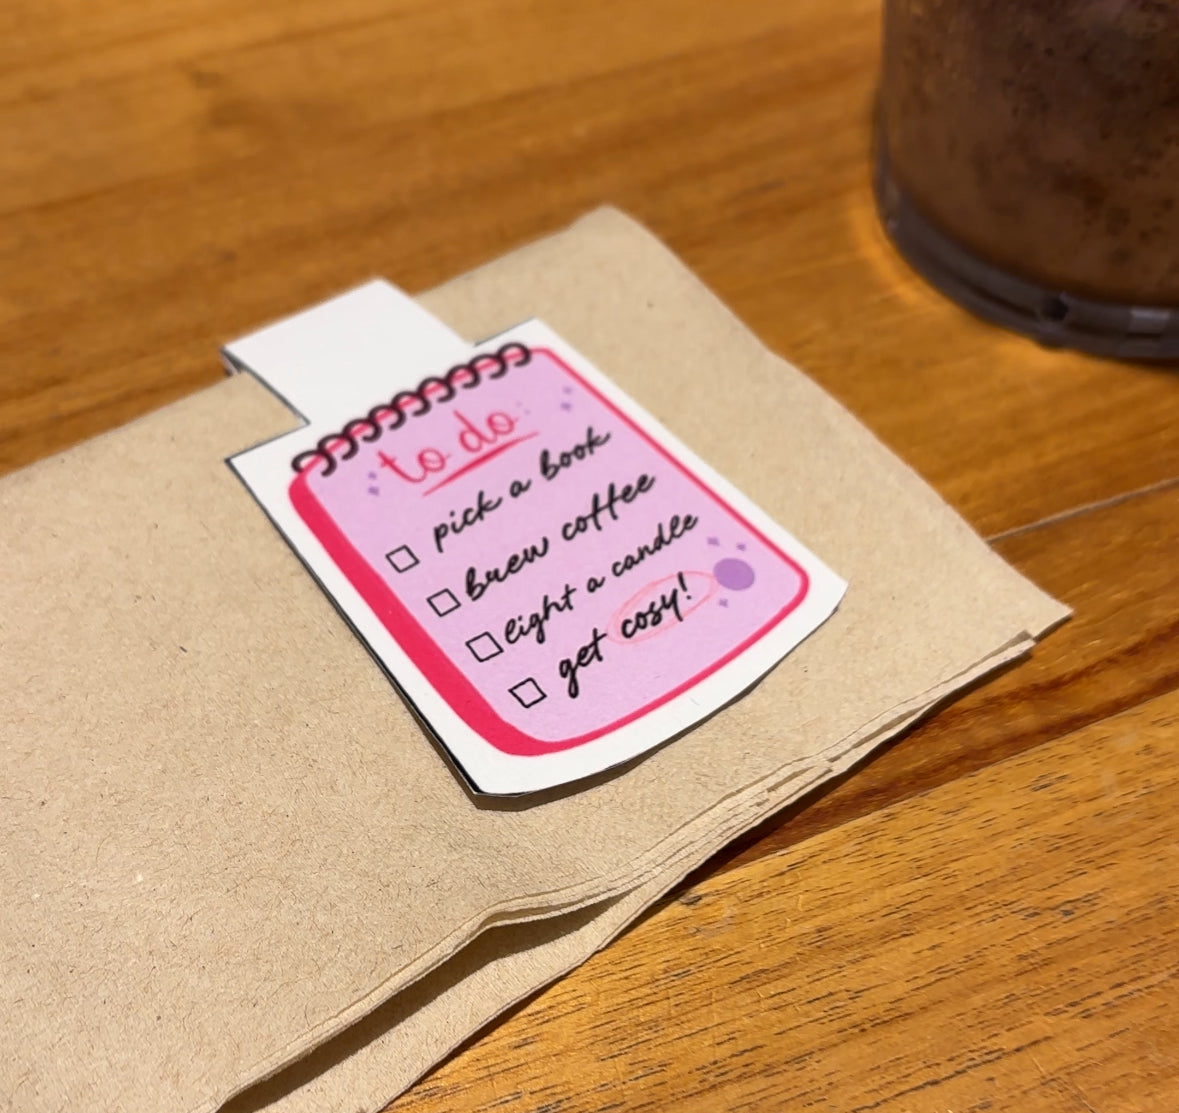 to do:
pick a book
brew coffee
light a candle
get cosy!